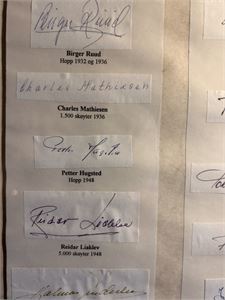 Birger Ruud
Birger Ruud
Hopp 1932 og 1936
Charles Mathiesen
Charles Mathiesen
1.500 skøyter 1936
Petter Hugsted
Petter Hugsted
Hopp 1948
Reidar Liaklev
Reidar Liaklev
5.000 skøyter 1948